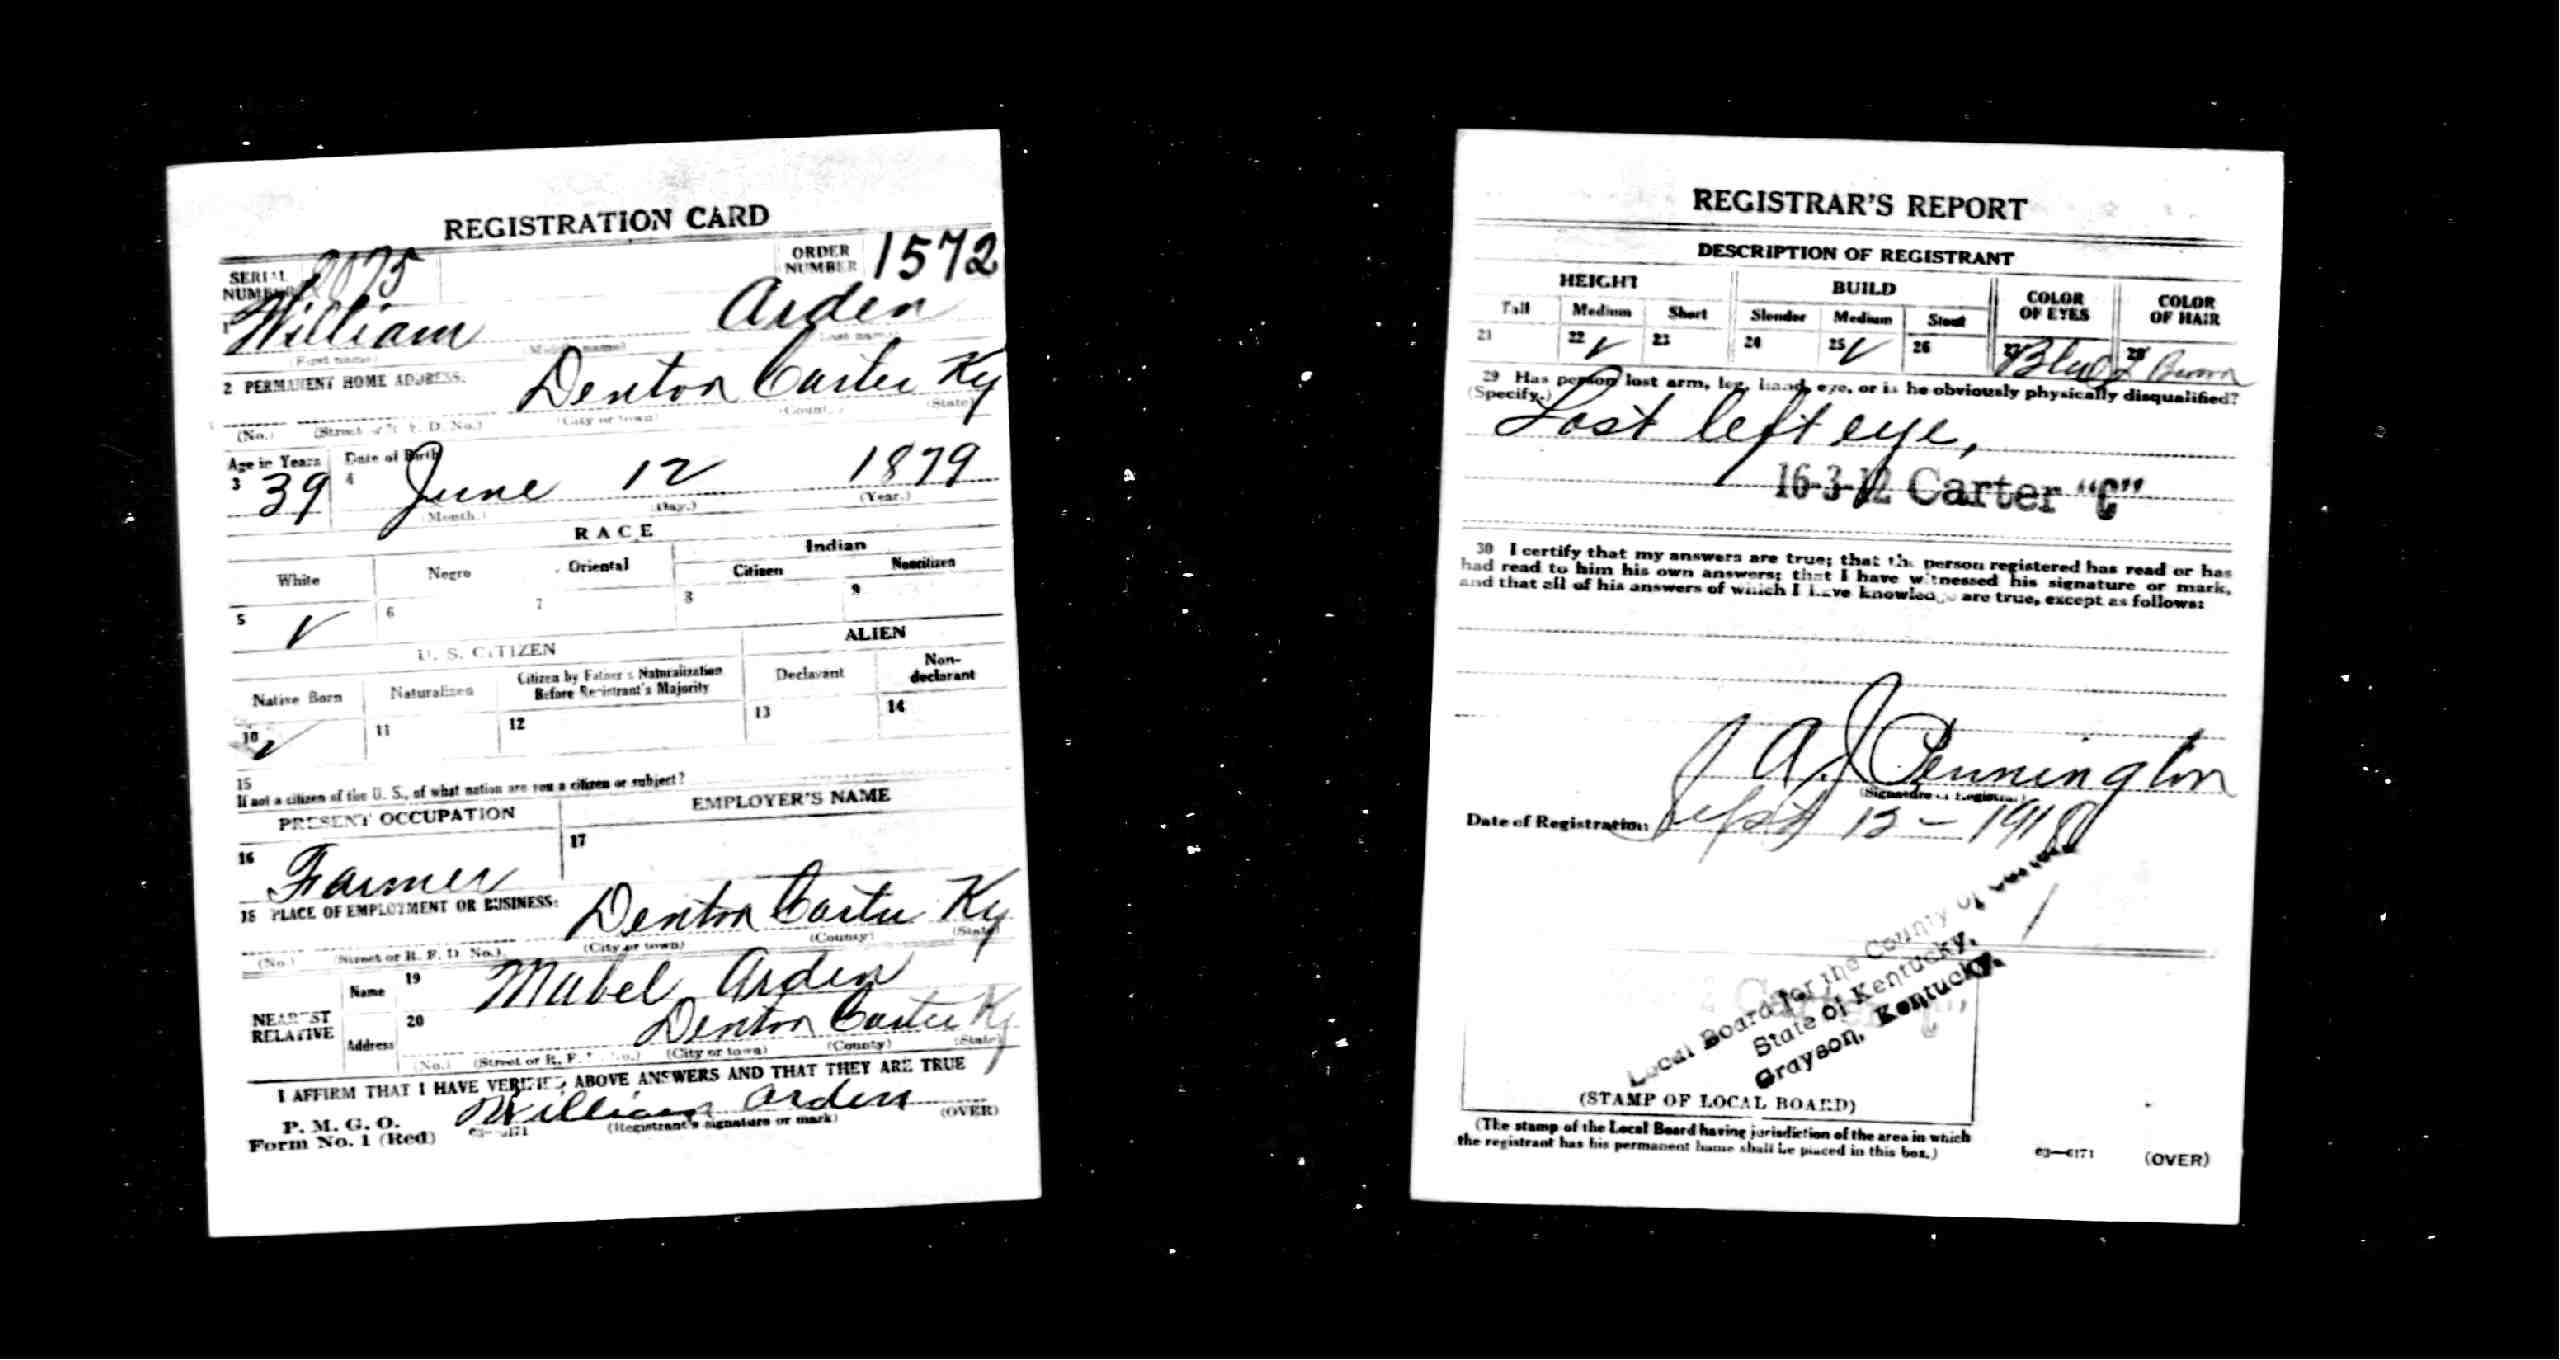 REGISTRATION CARD
SERIAL NUMBER
ORDER NUMBER 1572
1 William Arden
(First name) (Middle name) (Last name)
2 PERMANENT HOME ADDRESS:
Denton Carter Ky
(No.) (Street or R. F. D. No.) (City or town) (County) (State)
Age in Years Date of Birth
3 39 4 June 12 1879
(Month.) (Day.) (Year.)
RACE
White Negro Oriental Indian
Citizen Noncitizen
5 ✓ 6 7 8 9
U. S. CITIZEN ALIEN
Native Born Naturalized Citizen by Father's Naturalization Before Registrant's Majority Declarant Non-declarant
10 ✓ 11 12 13 14
15
If not a citizen of the U. S., of what nation are you a citizen or subject?
PRESENT OCCUPATION EMPLOYER'S NAME
16 Farmer 17
18 PLACE OF EMPLOYMENT OR BUSINESS:
Denton Carter Ky
(No.) (Street or R. F. D. No.) (City or town) (County) (State)
NEAREST RELATIVE
Name 19 Mabel Arden
Address 20 Denton Carter Ky
(No.) (Street or R. F. D. No.) (City or town) (County) (State)
I AFFIRM THAT I HAVE VERIFIED ABOVE ANSWERS AND THAT THEY ARE TRUE
P. M. G. O.
Form No. 1 (Red) 03—6171 William Arden
(Registrant's signature or mark) (OVER)
REGISTRAR'S REPORT
DESCRIPTION OF REGISTRANT
HEIGHT BUILD COLOR OF EYES COLOR OF HAIR
Tall Medium Short Slender Medium Stout
21 22 ✓ 23 24 25 ✓ 26 27 Blue 28 Brown
29 Has person lost arm, leg, hand, eye, or is he obviously physically disqualified?
(Specify.)
Lost left eye,
16-3-12 Carter "C"
30 I certify that my answers are true; that the person registered has read or has
had read to him his own answers; that I have witnessed his signature or mark,
and that all of his answers of which I have knowledge are true, except as follows:
A. J. Pennington
(Signature of Registrar)
Date of Registration Sept 12 - 1918
Local Board for the County of Carter
State of Kentucky,
Grayson, Kentucky.
(STAMP OF LOCAL BOARD)
(The stamp of the Local Board having jurisdiction of the area in which
the registrant has his permanent home shall be placed in this box.)
03—6171 (OVER)